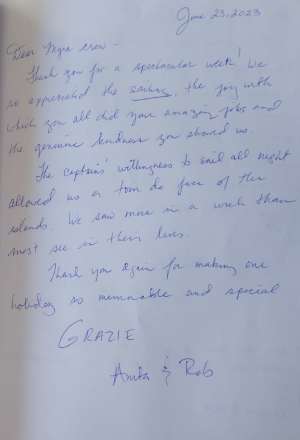 June 23, 2023
Dear Myra crew -
Thank you for a spectacular week! We
so appreciated the sailing, the joy with
which you all did your amazing jobs and
the genuine kindness you showed us.
The captain's willingness to sail all night
allowed us a tour de face of the
islands. We saw more in a week than
most see in their lives.
Thank you again for making our
holiday so memorable and special
GRAZIE
Anita & Rob